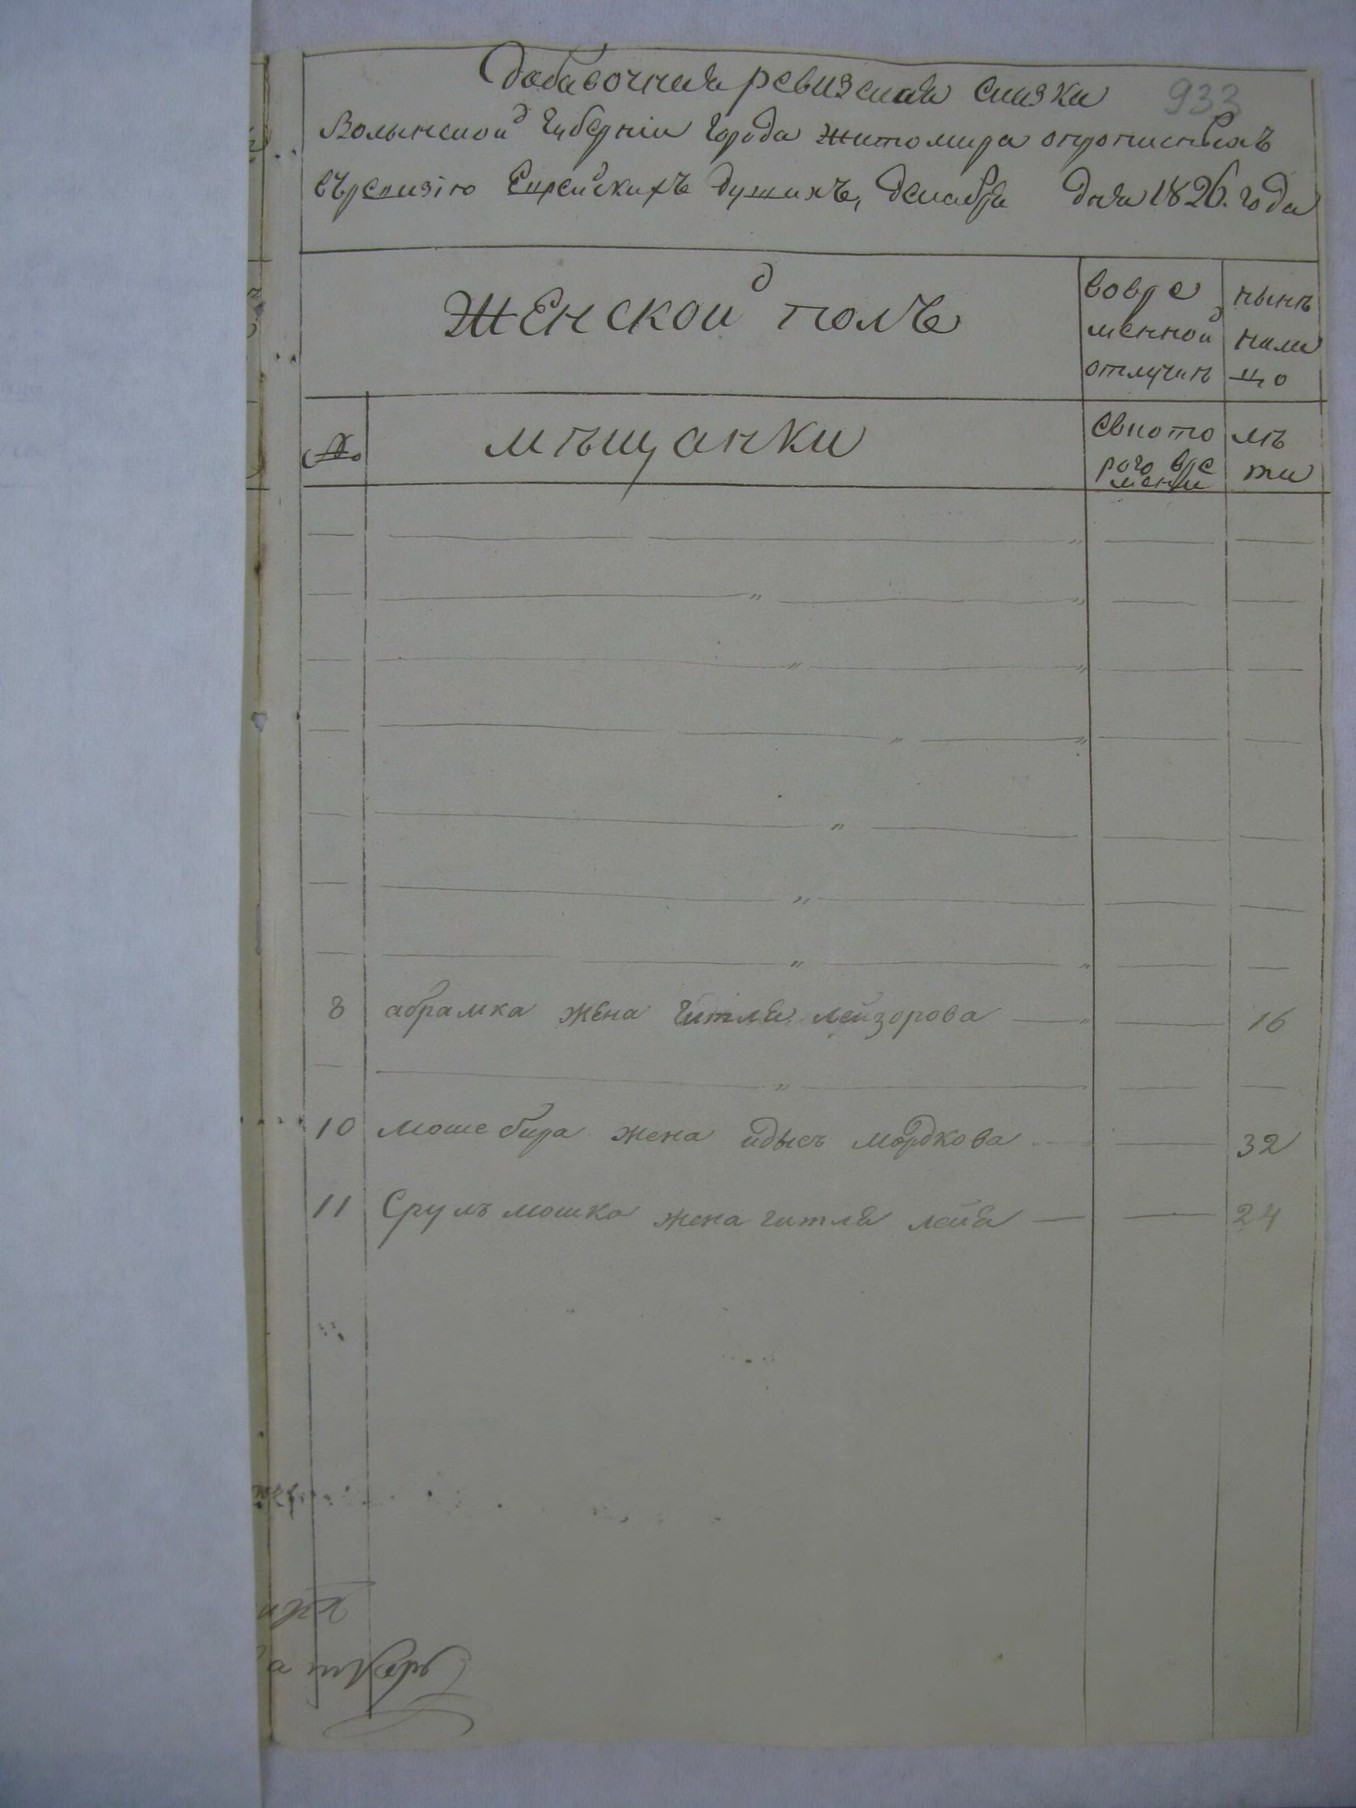 Добавочная ревизская сказка
933
Волынской Губерніи города Житомира опрописныхъ
въревизію Еврейскихъ душахъ, декабря дня 1826. года
Женской полъ
вовре
менной
отлучкѣ
нынѣ
нали
цо
№
мѣщанки
ското
раго вре
мени
лѣ
та
8 абрамка жена Гитля лейзорова 16
10 Моше бера жена идысъ мордкова 32
11 Сруль мошко жена гитля лейя 24